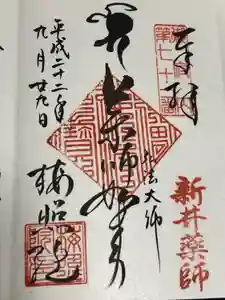 奉拝
弘法大師
薬師如来
平成二十二年
九月廿九日
梅照院
新井薬師